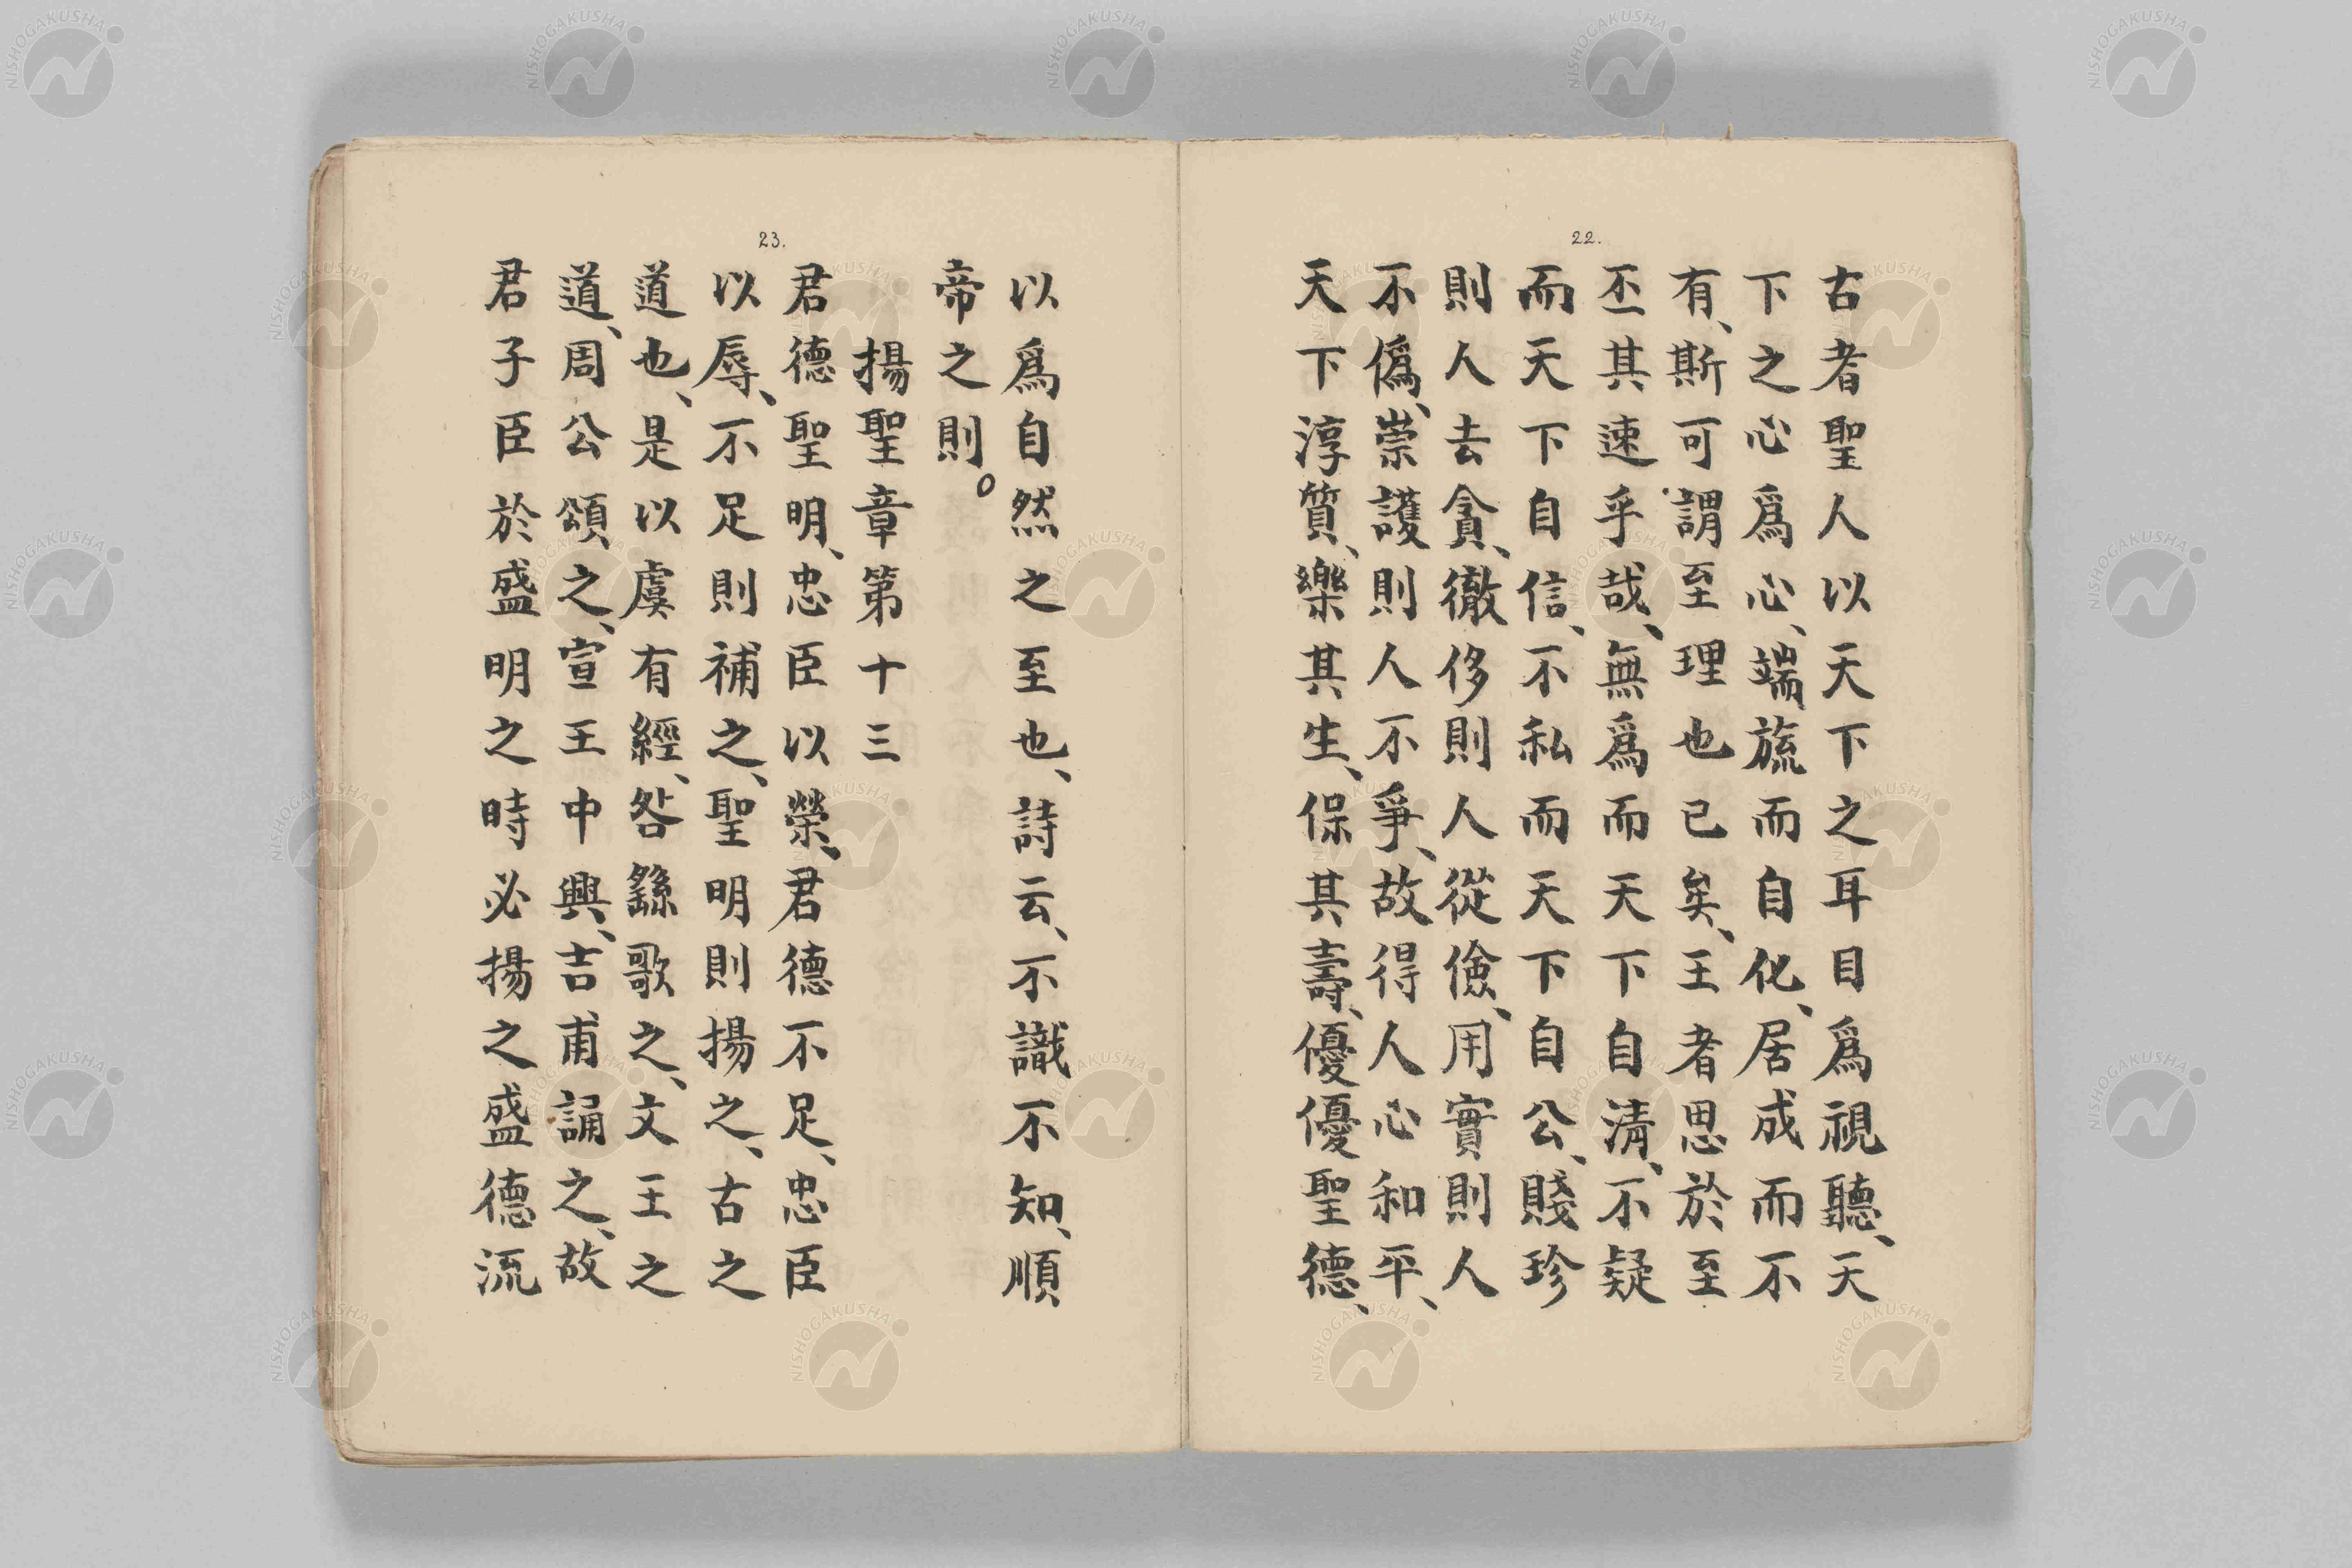 22.
古者聖人以天下之耳目爲視聽、天
下之心爲心、端旒而自化、居成而不
有、斯可謂至理也已矣、王者思於至
丕其速乎哉、無爲而天下自清、不疑
而天下自信、不私而天下自公、賤珍
則人去貪、徹侈則人從儉、用實則人
不僞、崇護則人不爭、故得人心和平、
天下淳質、樂其生、保其壽、優優聖德、
23.
以爲自然之至也、詩云、不識不知、順
帝之則。
揚聖章第十三
君德聖明、忠臣以榮、君德不足、忠臣
以辱、不足則補之、聖明則揚之、古之
道也、是以虞有經、咎繇歌之、文王之
道、周公頌之、宣王中興、吉甫誦之、故
君子臣於盛明之時必揚之盛德流
NISHOGAKUSHA